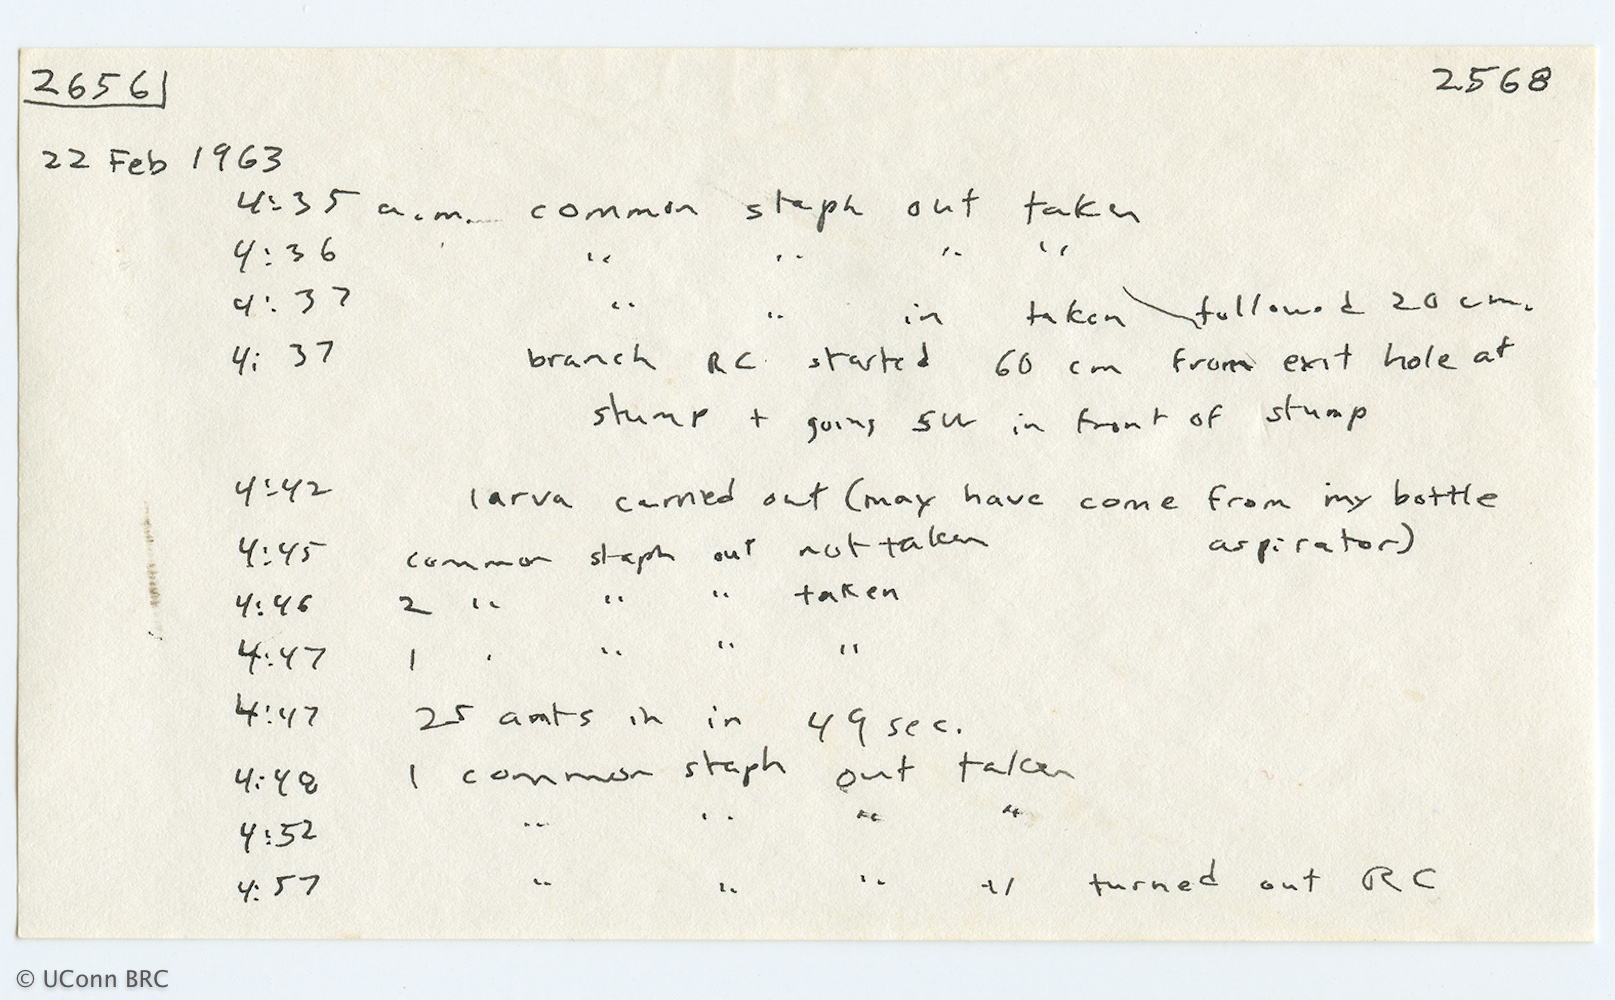 2656 2568
22 Feb 1963
4:35 a.m. common staph out taken
4:36 " " " "
4:37 " " in taken followed 20 cm.
4:37 branch RC started 60 cm from exit hole at
stump + going SW in front of stump
4:42 larva carried out (may have come from my bottle
aspirator)
4:45 common staph out not taken
4:46 2 " " " taken
4:47 1 " " " "
4:47 25 ants in in 49 sec.
4:48 1 common staph out taken
4:52 " " " "
4:57 " " " " turned out RC
© UConn BRC